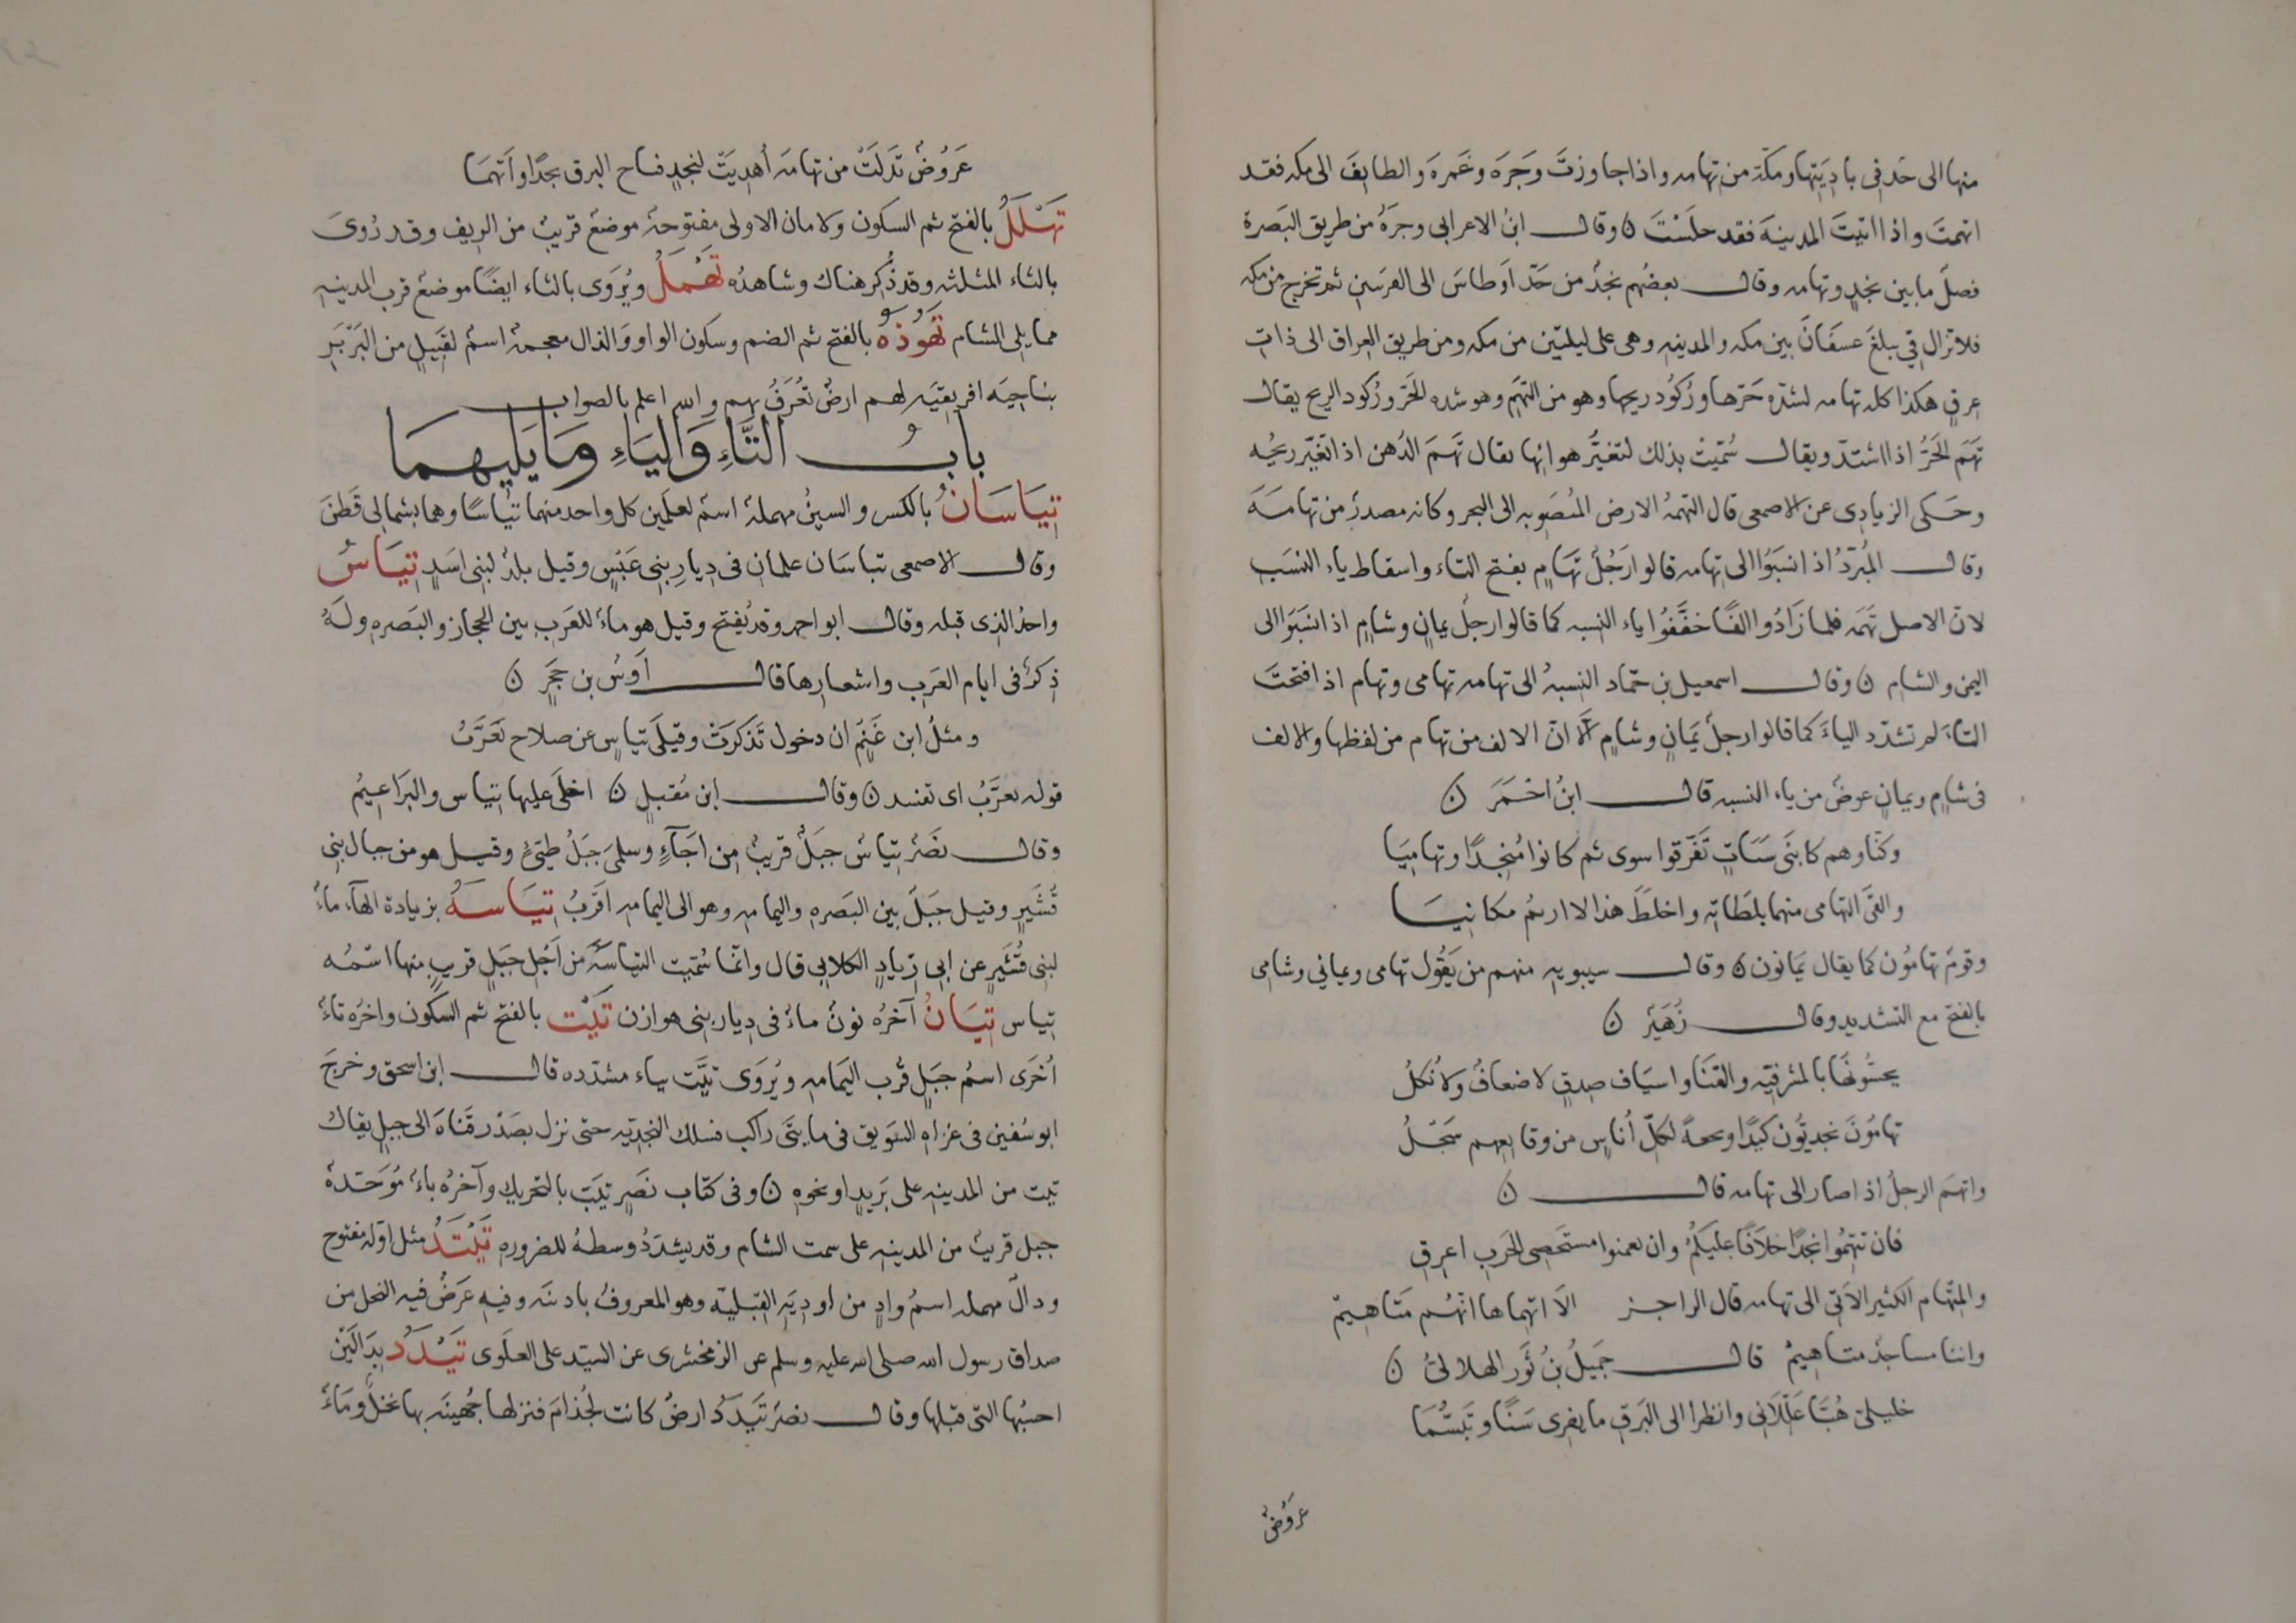 منها الى حَدّ فى باديَتِها ومكّة من تهامه واذا جاوزتَ وَجَرَه وغَمرَه والطايفَ الى مكه فقد
اتهمتَ واذا اتيتَ المدينَه فقد جلَسْتَ ن وقال ابنُ الاعرابى وجرَهُ من طريق البَصرة
فصلَ مابين نجدٍ وتهامه وقال بعضُهم نجدٌ من حَدّ اَوطاسَ الى القرسَينِ ثم تخرج من مكه
فلاتزال فى تبلغَ عسفَانَ بين مكه والمدينه وهى على ليلتَين من مكه ومن طريق العراق الى ذاتِ
عرقٍ هكذا كله تهامه لشدّه حَرّها ورُكوُد ريحها وهو من التهَمِ وهو شده الحَرّ ورُكود الريح يقال
تَهَم الحَرُّ اذا اشتدّ ويقال سُمّيتْ بذلك لتغيُّر هوائها يقال تَهَمَ الدُهن اذا تَغيّر ريحُه
وحَكى الزيادى عن الاصمعى قال التهمهُ الارض المُتصَوبه الى البحر وكانه مصدرٌ من تهامَه
وقال المُبرّدُ اذ انسَبَوُا الى تِهامه قالوا رَجُلٌ تَهَامٍ بفتح التاء واسقاط ياء النسَب
لان الاصل تَهَمَه فلما زَادُوا الفًا خفَّفوُا ياء النسبه كما قالوا رجلٌ يمانٍ وشامٍ اذا نسَبَوا الى
اليمن والشام ن وقال اسمعيل بن حمّاد النِسبهُ الى تهامه تهامى وتهام اذا فتحتَ
التاءَ لم تشدّد الياءَ كما قالوا رجلٌ يَمَانٍ وشامٍ الا انّ الالف من تهام من لفظها والالف
فى شامٍ ويمانٍ عوضٌ من ياء النسبه قال ابنُ اَحْمَرَ ن
وكنّا وهم كابنَى سَبَاتٍ تَفَرّقوا سوى ثم كانوا مُنجِدًا وتهاميَا
والقَى التهامى منهما بلطَاتِه واخلطَ هذا لا اريمُ مكانيَا
وقومٌ تهامُون كما يقال يَمانون ن وقال سيبويه منهم من يَقوُل تهامى ويمانى وشامى
بالفتح مع التشديد وقال زُهَيْرٌ ن
يحشُونهَا بالمشرفيّه والقنَا واسيَاف صِدقٍ لا ضعافٌ ولا نُكلُ
تهامُونَ نجديُّون كَيدًا ونجعةً لكلِّ اُناسٍ من وقايعهم سَجْلُ
واتهمَ الرجلُ اذا صار الى تهامه قال ن
فان تتهِمُوا نجدًا خلاَفًا عليَكمُ وان تعمنوا مستَحصى الحرب اعرقِ
والمِتهَام الكثير الاتى الى تهامه قال الراجز الاَ اتهماها انّهُم مَتَاهِيمْ
واننا مساجدٌ متاهيمُ قال جَميلُ بنُ ثَور الهلالىُّ ن
خليلىَّ هُبَّا عَلّلاَنى وانظرا الى البَرقِ ما يفرى سَنًا وتَبَسُّمَا
عروُضٌ
عَرَوُضٌ تَدَلَتْ من تهامَه اُهدِيَتْ لنجدٍ فساح البرق نجدًا واَتهمَا
تَهْلَلُ بالفتح ثم السكون ولامان الاولى مفتوحهٌ موضعٌ قريبٌ من الريف وقد رُوىَ
بالثاء المثلثه وقد ذُكر هناك وشاهدُه تَهْمَلُ ويُروَى بالثاء ايضًا موضعٌ قرب المدينه
مما يلى الشام تَهُوْذَهُ بالفتح ثم الضم وسكون الواو وَالذال معجمهٌ اسمٌ لقَبيِلٍ من البَرْبَرِ
بناحيَه افريقيَه لهم ارضٌ تُعرَفُ بهم والله اعلم بالصواب
بابُ التَّاءِ وَاليَاءِ وَمَا يَليهمَا
تِيَاسَانُ بالكسر والسينُ مهملهٌ اسمٌ لعلَمين كل واحد منهما تيُاسًا وهما بشمالى قَطَنَ
وقال الاصمعى تياسَان علمانِ فى دِيارِ بنى عَبْسٍ وقيل بلدٌ لبنى اسَدٍ تِيَاسُ
واحدُ الذى قبله وقال ابو احمد وقد يُفتح وقيل هو ماءٌ للعَرَب بين الحجاز والبَصره ولَهُ
ذِكرٌ فى ايام العَرَب واشعارها قال اَوسُ بن حَجَرٍ ن
ومثلُ ابن غَنْمٍ ان دخول تَذكرَتْ وقيلَى تياسٍ عن صلاح تَعَرَّبُ
قوله تعرَّبُ اى تفسد ن وقال ابن مُقبلٍ ن اخلَى عليها تياس والبرَاعيمُ
وقال نصَرٌ تِياسُ جبَلٌ قريبٌ من اجَآءٍ وسلمىَ جبَلُ طيّئٍ وقيل هو من جبال بنى
قُشَيرٍ وقيل جَبَلٌ بين البَصره واليمامه وهو الى اليمامه اقَربُ تِيَاسَهُ بزيادة الهآء ماءٌ
لبنى قُشَيرٍ عن ابى زيادٍ الكلابى قال وانمّا سُميّت التياسَه من اَجْل جبَلٍ قريبٍ منها اسمُه
تياس تِيَانُ آخرُه نونٌ ماءٌ فى ديار بنى هوازن تَيْت بالفتح ثم السكون واخرُه تاءٌ
اُخرَى اسمُ جبَلٍ قُرب اليمَامه ويُروَى تيَّت بياء مشدّده قال ابن اسحق وخرجَ
ابو سُفين فى غزاهِ السَويق فى مايتَى راكب فسلك النجديّه حتى نزل بصَدْر قَنَاهَ الى جبلٍ يقالُ
تيت من المدينه على بَريدٍ او نحوه ن وفى كتاب نَصَرٍ تَيَب بالتحريك وآخرُه باءٌ مُوَحّدهٌ
جبل قريبٌ من المدينه على سمت الشام وقد يشدّدُ وسطهُ للضروره تَيْتَدُ مثل اوّله مفتوح
ودالٌ مهمله اسمُ وادٍ من اودِيَه القَبَليّه وهو المعروفُ باذنَه وفيه عَرضٌ فيه النخل من
صداق رسول الله صلى الله عليه وسلم عن الزمخشرى عن السيّد على العلَوى تَيْدَدُ بدَالَيْن
احسبُها التى قبلها وقال نصَرٌ تَيْدَدُ ارضٌ كانت لجُذامَ فنزلها جُهينَه بها نخلٌ ومَاءٌ